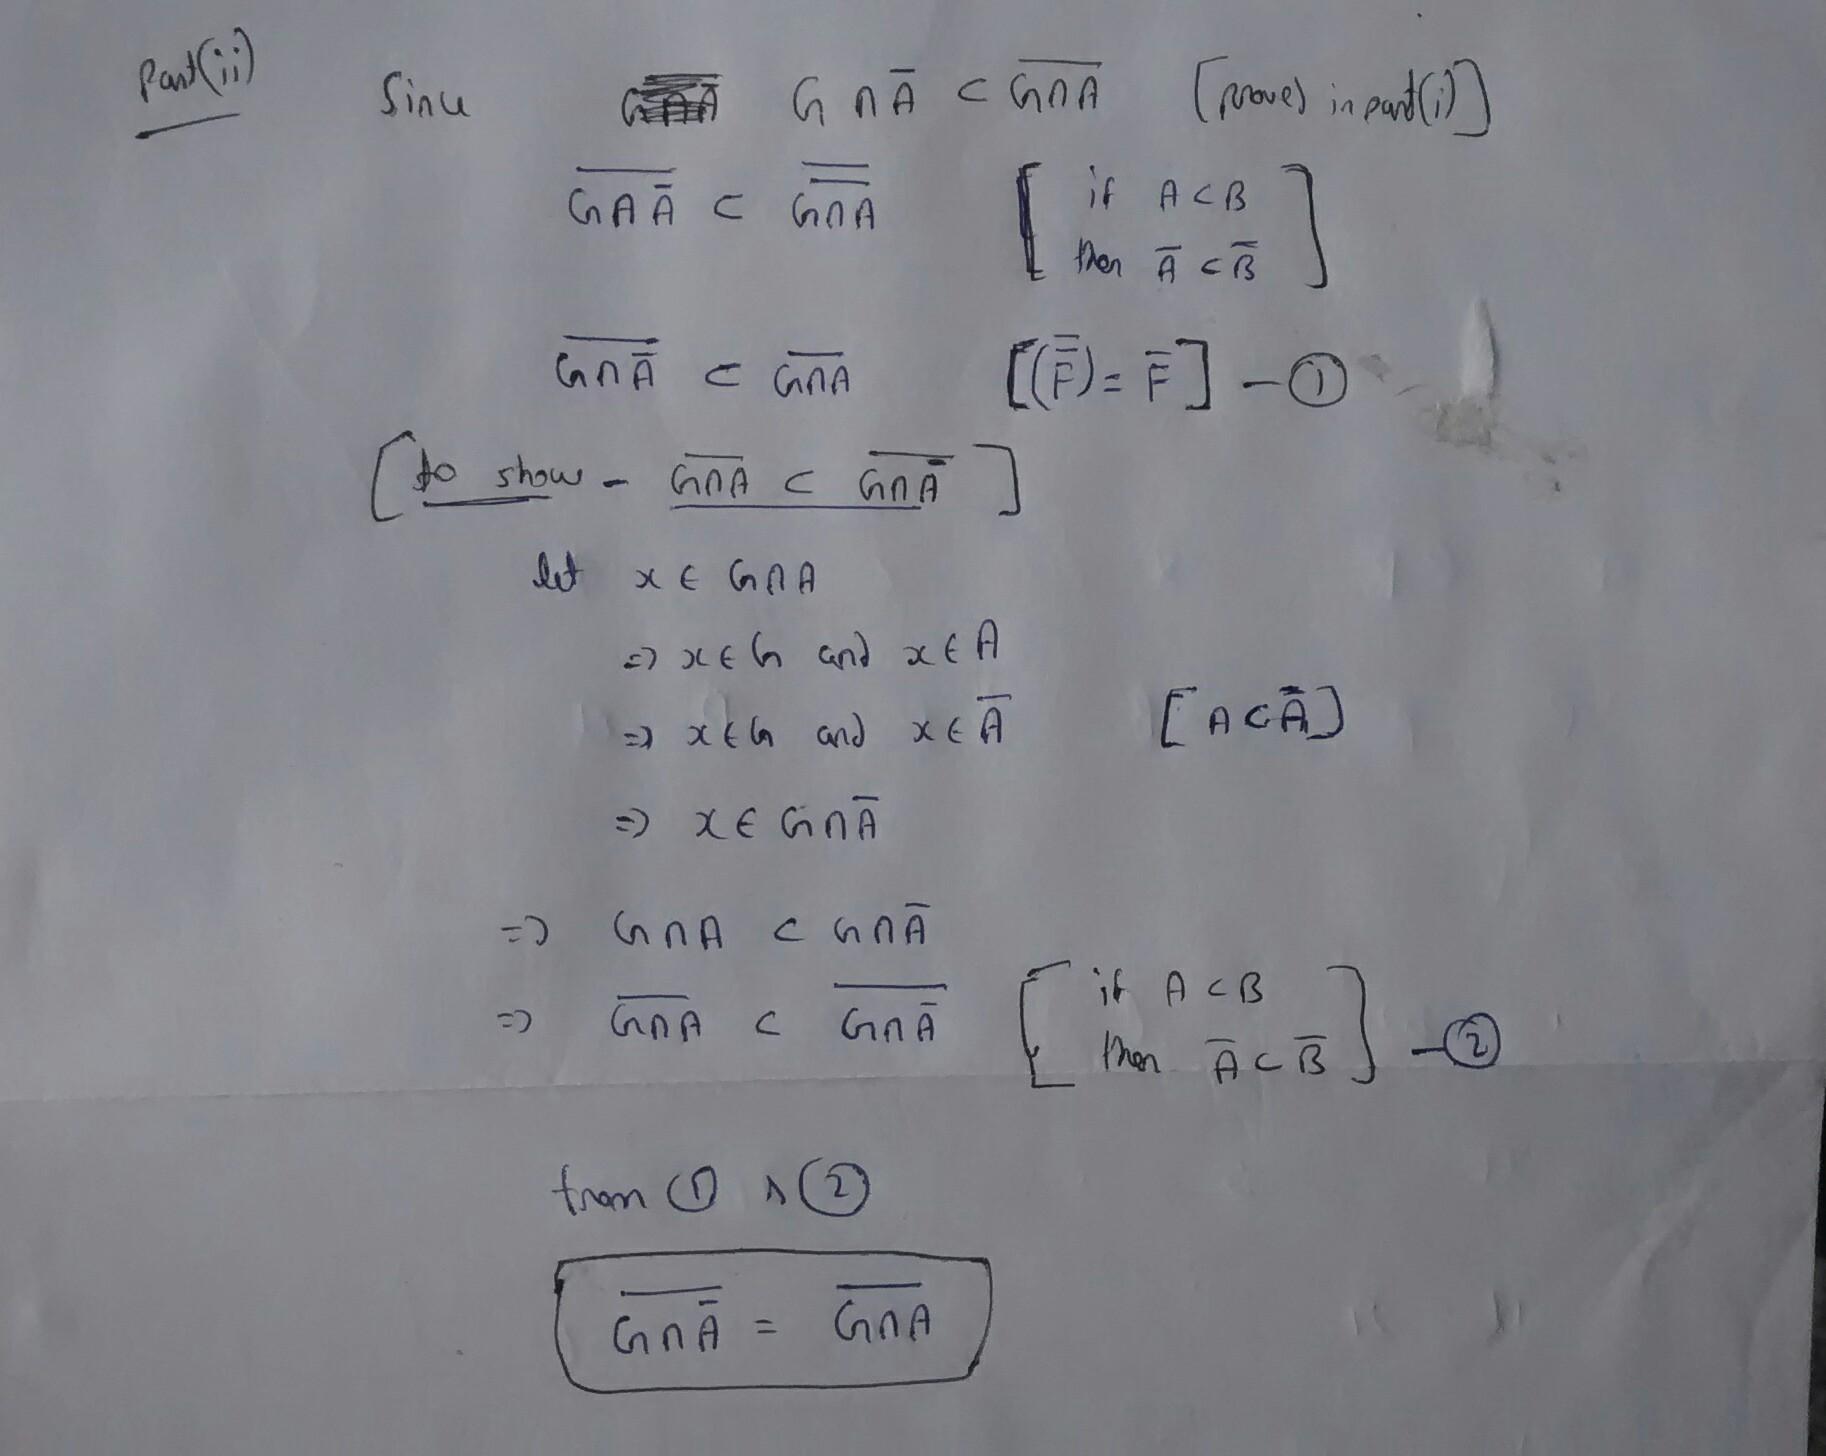 Part(ii)
Since G∩Ā ⊂ \overline{G∩A} [proved in part(i)]
\overline{G∩Ā} ⊂ \overline{\overline{G∩A}} [if A⊂B
then Ā⊂B̄]
\overline{G∩Ā} ⊂ \overline{G∩A} [(\overline{F̄}) = F̄] - ①
[to show - \overline{G∩A} ⊂ \overline{G∩Ā}]
let x ∈ G∩A
⇒ x∈G and x∈A
⇒ x∈G and x∈Ā [A⊂Ā]
⇒ x∈G∩Ā
⇒ G∩A ⊂ G∩Ā
⇒ \overline{G∩A} ⊂ \overline{G∩Ā} [if A⊂B
then Ā⊂B̄] - ②
from ① & ②
\overline{G∩Ā} = \overline{G∩A}